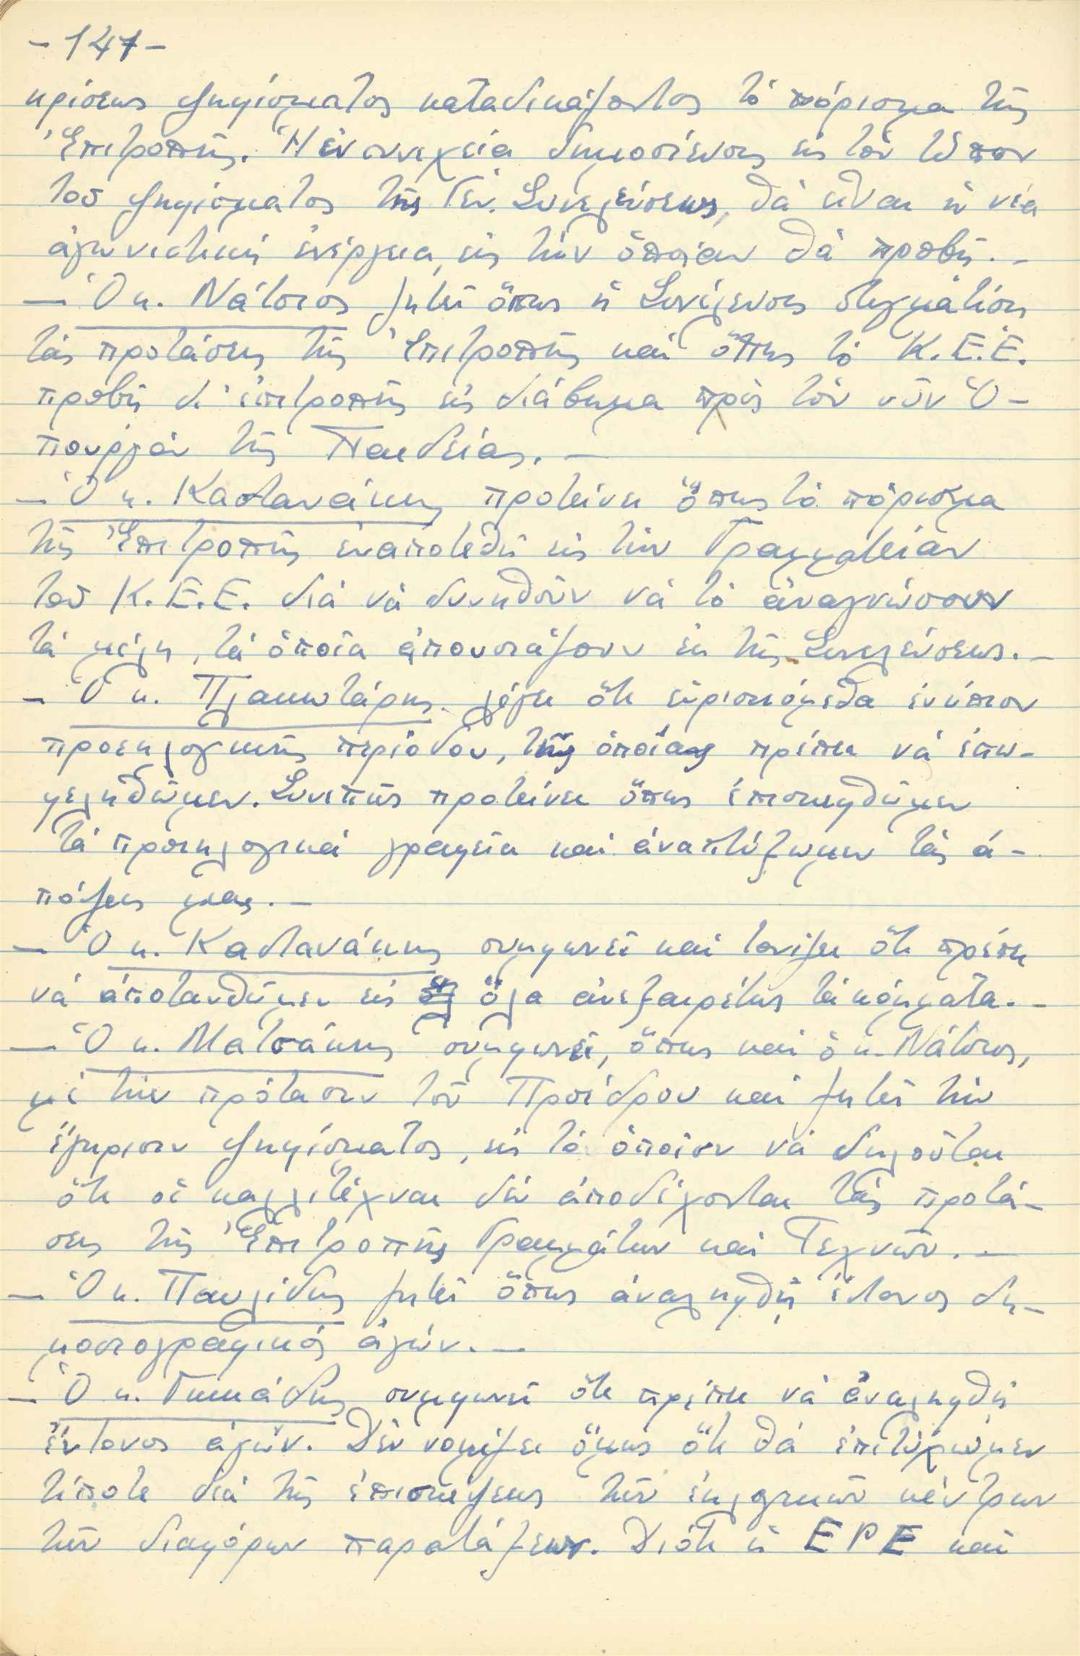 -147-
κρίσεως ψηφίσματος καταδικάζοντος τό πόρισμα τῆς
Ἐπιτροπῆς. Ἡ ἐν συνεχείᾳ δημοσίευσις εἰς τόν τύπον
τοῦ ψηφίσματος τῆς Γεν. Συνελεύσεως, θά εἶναι ἡ νέα
ἀγωνιστική ἐνέργεια, εἰς τήν ὁποίαν θά προβῇ. -
- Ὁ κ. Νάτσιος ζητεῖ ὅπως ἡ Συνέλευσις στιγματίσῃ
τάς προτάσεις τῆς Ἐπιτροπῆς καί ὅπως τό Κ.Ε.Ε.
προβῇ δι' ἐπιτροπῆς εἰς διάβημα πρός τόν νῦν Ὑ-
πουργόν τῆς Παιδείας. -
- Ὁ κ. Καστανάκης προτείνει ὅπως τό πόρισμα
τῆς Ἐπιτροπῆς ἐναποτεθῇ εἰς τήν Γραμματείαν
τοῦ Κ.Ε.Ε. διά νά δυνηθοῦν νά τό ἀναγνώσουν
τά μέλη, τά ὁποῖα ἀπουσιάζουν ἐκ τῆς Συνελεύσεως. -
- Ὁ κ. Πλακωτάρης λέγει ὅτι εὑρισκόμεθα ἐνώπιον
προεκλογικῆς περιόδου, τῆς ὁποίας πρέπει νά ἐπω-
φεληθῶμεν. Συνεπῶς προτείνει ὅπως ἐπισκεφθῶμεν
τά προεκλογικά γραφεῖα καί ἀναπτύξωμεν τάς ἀ-
πόψεις μας. -
- Ὁ κ. Καστανάκης συμφωνεῖ καί τονίζει ὅτι πρέπει
νά ἀποτανθῶμεν εἰς ὅλα ἀνεξαιρέτως τά κόμματα. -
- Ὁ κ. Ματσάκης συμφωνεῖ, ὅπως καί ὁ κ. Νάτσιος,
μέ τήν πρότασιν τοῦ Προέδρου καί ζητεῖ τήν
ἔγκρισιν ψηφίσματος, εἰς τό ὁποῖον νά δηλοῦται
ὅτι οἱ καλλιτέχναι δέν ἀποδέχονται τάς προτά-
σεις τῆς Ἐπιτροπῆς Γραμμάτων καί Τεχνῶν. -
- Ὁ κ. Παυλίδης ζητεῖ ὅπως ἀναληφθῇ ἔντονος δη-
μοσιογραφικός ἀγών. -
- Ὁ κ. συμφωνεῖ ὅτι πρέπει νά ἀναληφθῇ
ἔντονος ἀγών. Δέν νομίζει ὅμως ὅτι θά ἐπιτύχωμεν
τίποτε διά τῆς ἐπισκέψεως τῶν ἐκλογικῶν κέντρων
τῶν διαφόρων παρατάξεων. Διότι ἡ ΕΡΕ καί